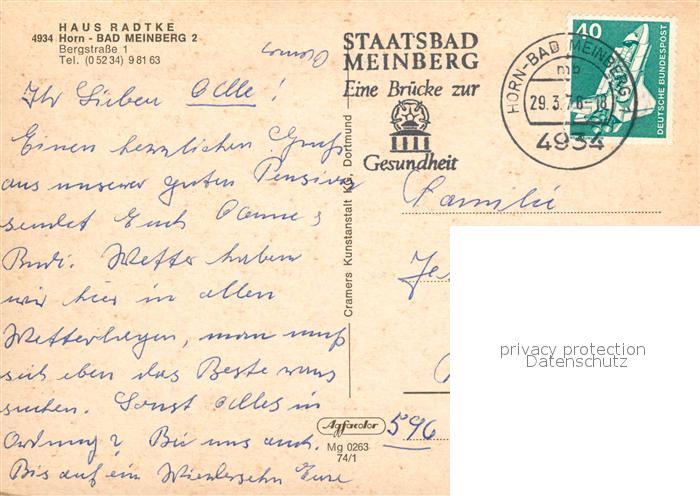 HAUS RADTKE
4934 Horn - BAD MEINBERG 2
Bergstraße 1
Tel. (05234) 98163
Ihr Lieben Alle!
Einen herzlichen Gruß
aus unserer guten Pension
sendet Euch
Rudi. Wetter haben
wir hier in allen
Wetterlagen, man muß
sich eben das Beste raus
suchen. Sonst Alles in
Ordnung? Bei uns auch.
Bis auf ein Wiedersehn Eure
Cramers Kunstanstalt KG, Dortmund
STAATSBAD
MEINBERG
Eine Brücke zur
Gesundheit
HORN-BAD MEINBERG 1
mb
29.3.76-18
4934
40
DEUTSCHE BUNDESPOST
Familie
596
Agfacolor
Mg 0263
74/1
privacy protection
Datenschutz